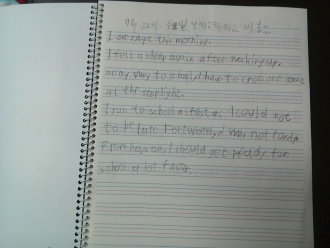 9월 22일 수요일
I overslept this morning.
I fell a sleep again after waking up.
on my way to school, I had to cross once
at the stoplight.
I ran to school as fast as I could not
to be late. Fortunately, I was not tardy.
From now on, I should get ready for
school a lot faster.